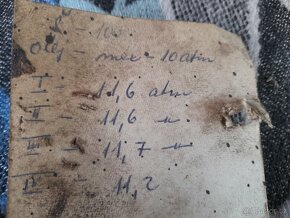 - 10.
Olej - mec - 10 atm
I - 11,6 atm
II - 11,6 -"-
III - 11,7 -"-
IV - 11,2